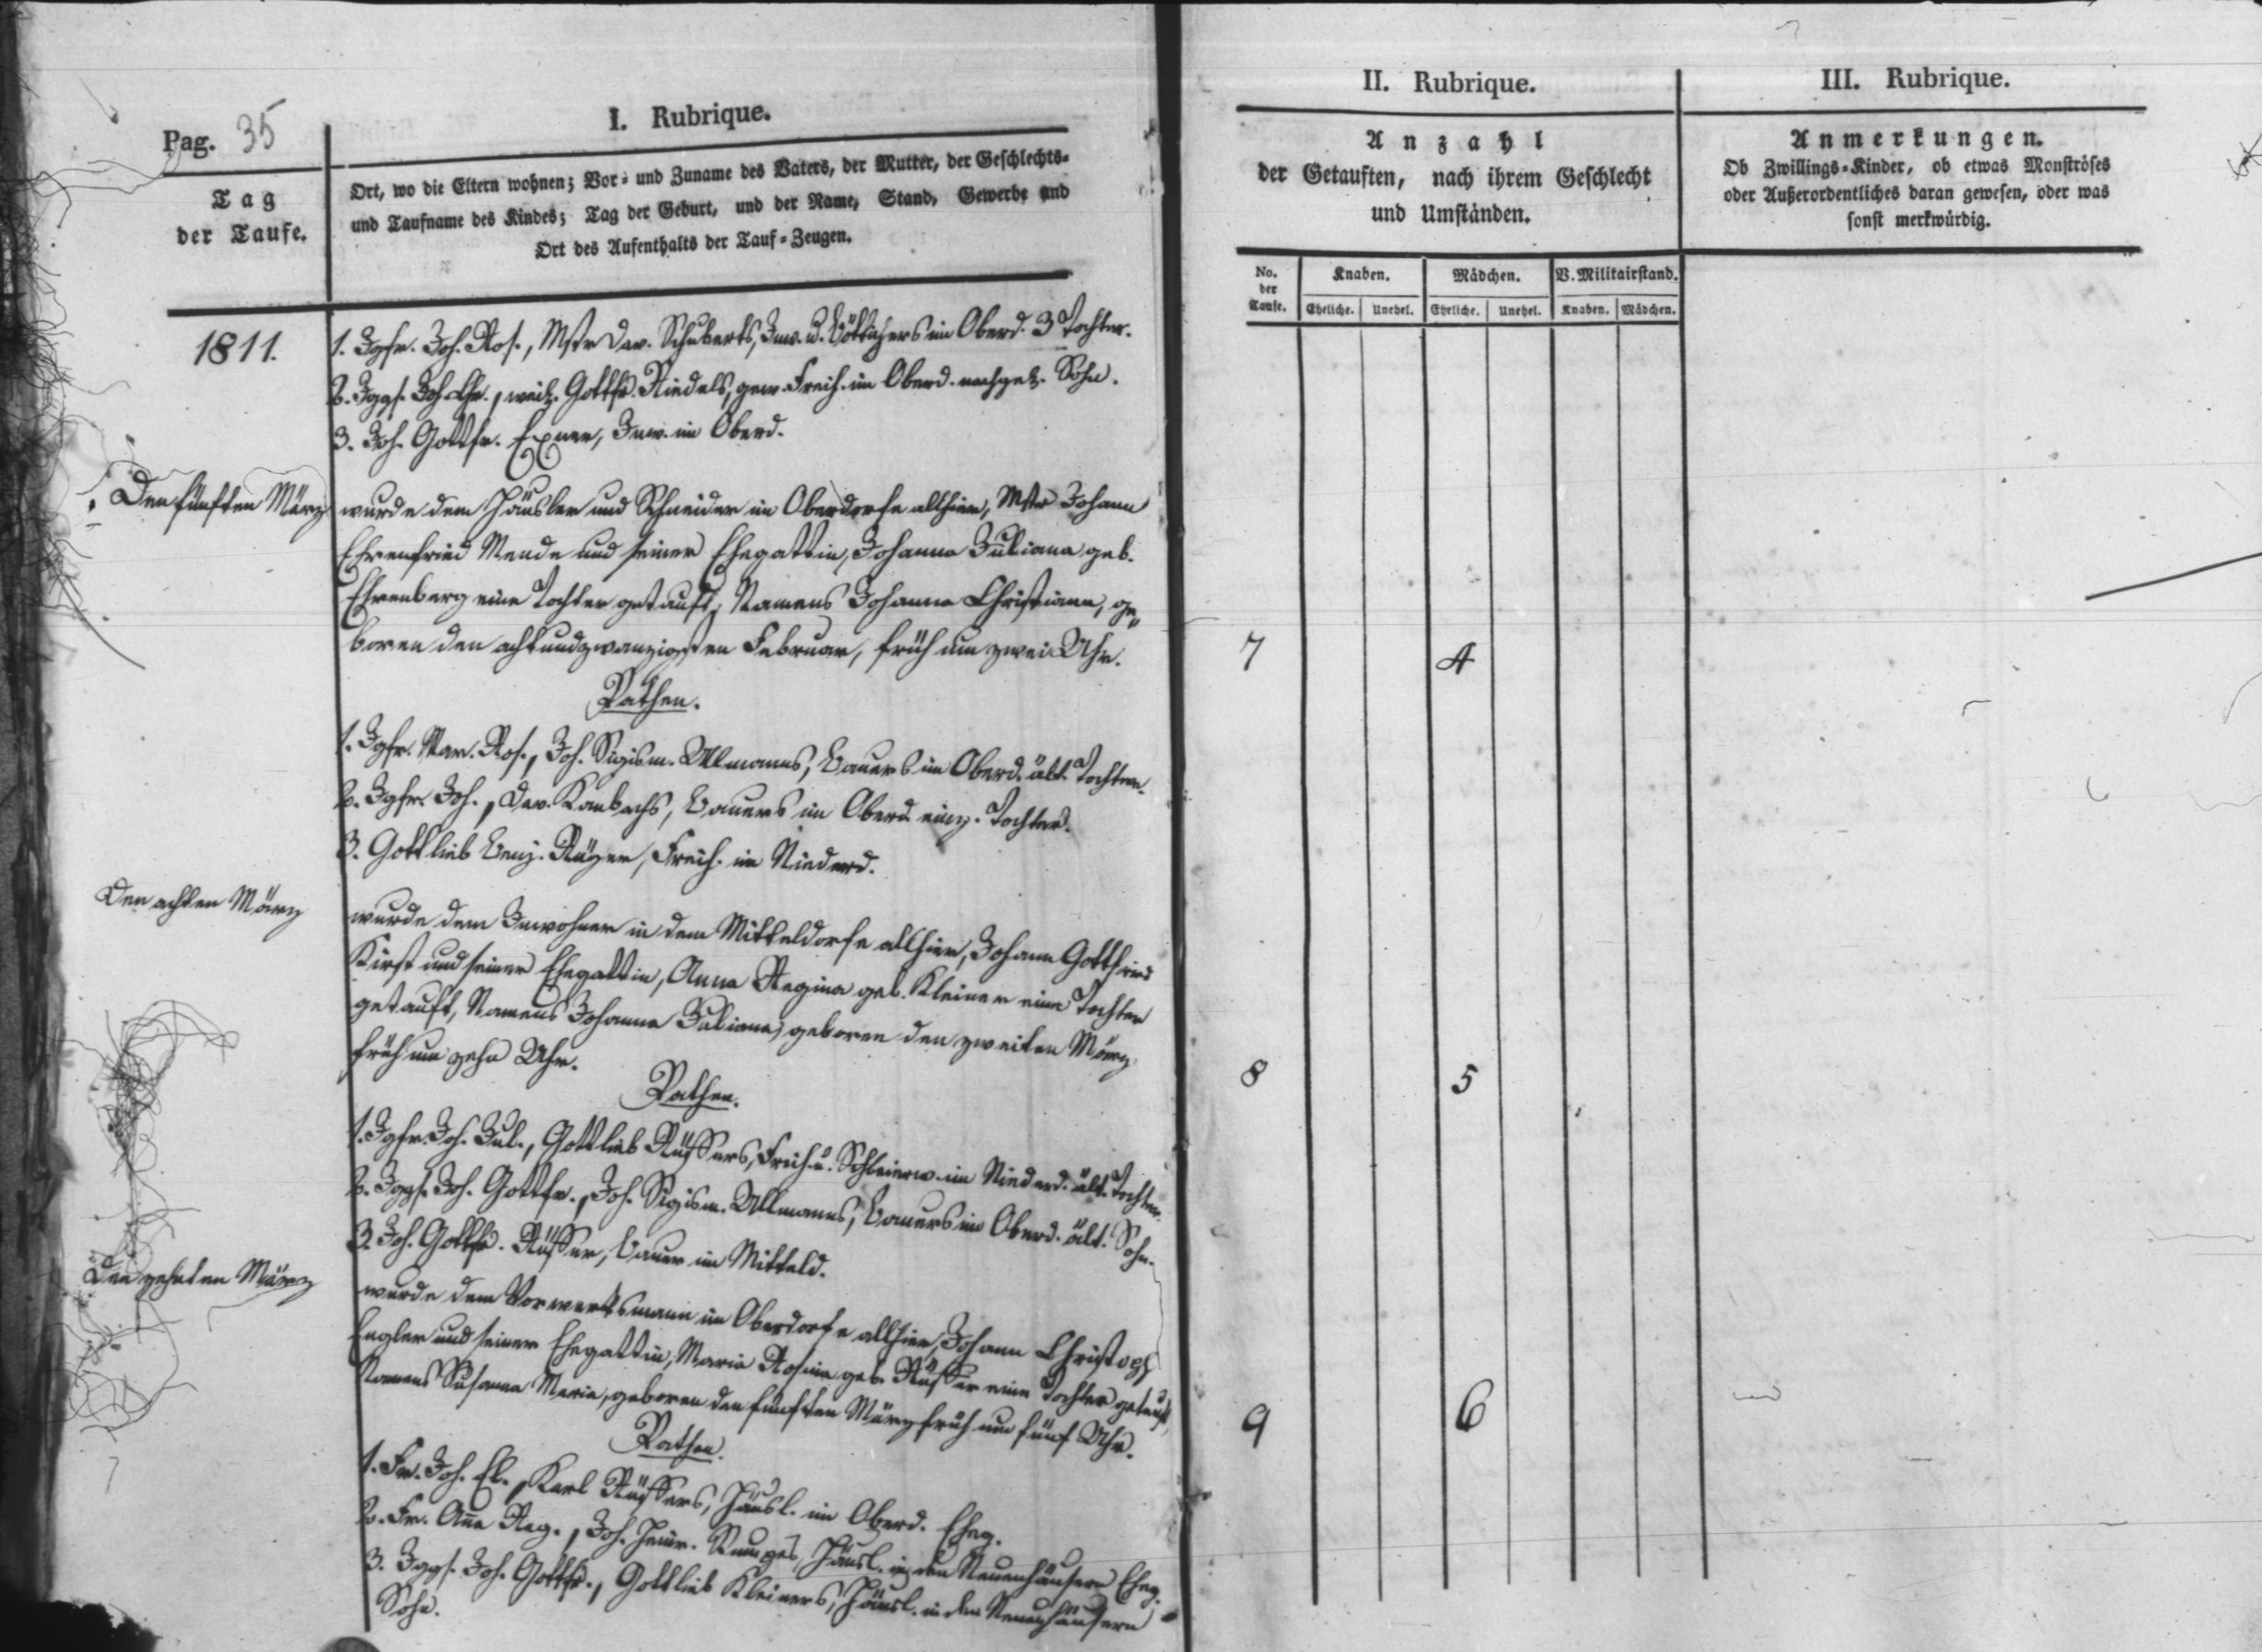 Pag. 35
I. Rubrique.
Tag
der Taufe.
Ort, wo die Eltern wohnen; Vor- und Zuname des Vaters, der Mutter, der Geschlechts-
und Taufname des Kindes; Tag der Geburt, und der Name, Stand, Gewerbe und
Ort des Aufenthalts der Tauf-Zeugen.
1811.
1. Igfr. Joh. Ros., Mstr Dav. Schuberts, Inw. u. Böttchers im Oberd. 3 Tochter.
2. Iggs. Joh. Chr., weil. Gottfr. Riedels, gew. Freih. im Oberd. nachgel. Sohn.
3. Joh. Gottfr. Exner, Inw. im Oberd.
Den fünften März
wurde dem Häusler und Schneider im Oberdorfe allhier, Mstr Johann
Ehrenfried Mende und seiner Ehegattin, Johanna Juliana geb.
Ehrenberg eine Tochter getauft, Namens Johanna Christiana, ge-
boren den achtundzwanzigsten Februar, früh um zwei Uhr.
Pathen.
1. Igfr. Mar. Ros., Joh. Sigism. Ullmanns, Bauers im Oberd. ält. Tochter.
2. Igfr. Joh., Dav. Kambachs, Bauers im Oberd. einz. Tochter.
3. Gottlieb Benj. Freih. im Niederd.
Den achten März
wurde dem Inwohner in dem Mitteldorfe allhier, Johann Gottfried
Kirst und seiner Ehegattin, Anna Regina geb. Kleiner eine Tochter
getauft, Namens Johanna Juliana, geboren den zweiten März
früh um zehn Uhr.
Pathen.
1. Igfr. Joh. Jul., Gottlieb Rüffers, Freih. u. Schleierw. im Niederd. ält. Tochter.
2. Iggs. Joh. Gottfr., Joh. Sigism. Ullmanns, Bauers im Oberd. ält. Sohn.
3. Joh. Gottfr. Rüffer, Bauer im Mitteld.
Den zehnten März
wurde dem Vorwerksmann im Oberdorfe allhier, Johann Christoph
Engler und seiner Ehegattin, Maria Rosina geb. Rüffer eine Tochter getauft,
Namens Susanna Maria, geboren den fünften März früh um fünf Uhr.
Pathen.
1. Fr. Joh. El., Karl Rüffers, Häusl. im Oberd. Eheg.
2. Fr. Anna Reg., Joh. Heinr. Häusl. in den Neuenhäusern Eheg.
3. Iggs. Joh. Gottfr., Gottlieb Kleiners, Häusl. in den Neuenhäusern
Sohn.
II. Rubrique.
Anzahl
der Getauften, nach ihrem Geschlecht
und Umständen.
No.
der
Taufe.
Knaben.
Mädchen.
V. Militairstand.
Eheliche. Unehel. Eheliche. Unehel. Knaben. Mädchen.
7 4
8 5
9 6
III. Rubrique.
Anmerkungen.
Ob Zwillings-Kinder, ob etwas Monströses
oder Außerordentliches daran gewesen, oder was
sonst merkwürdig.